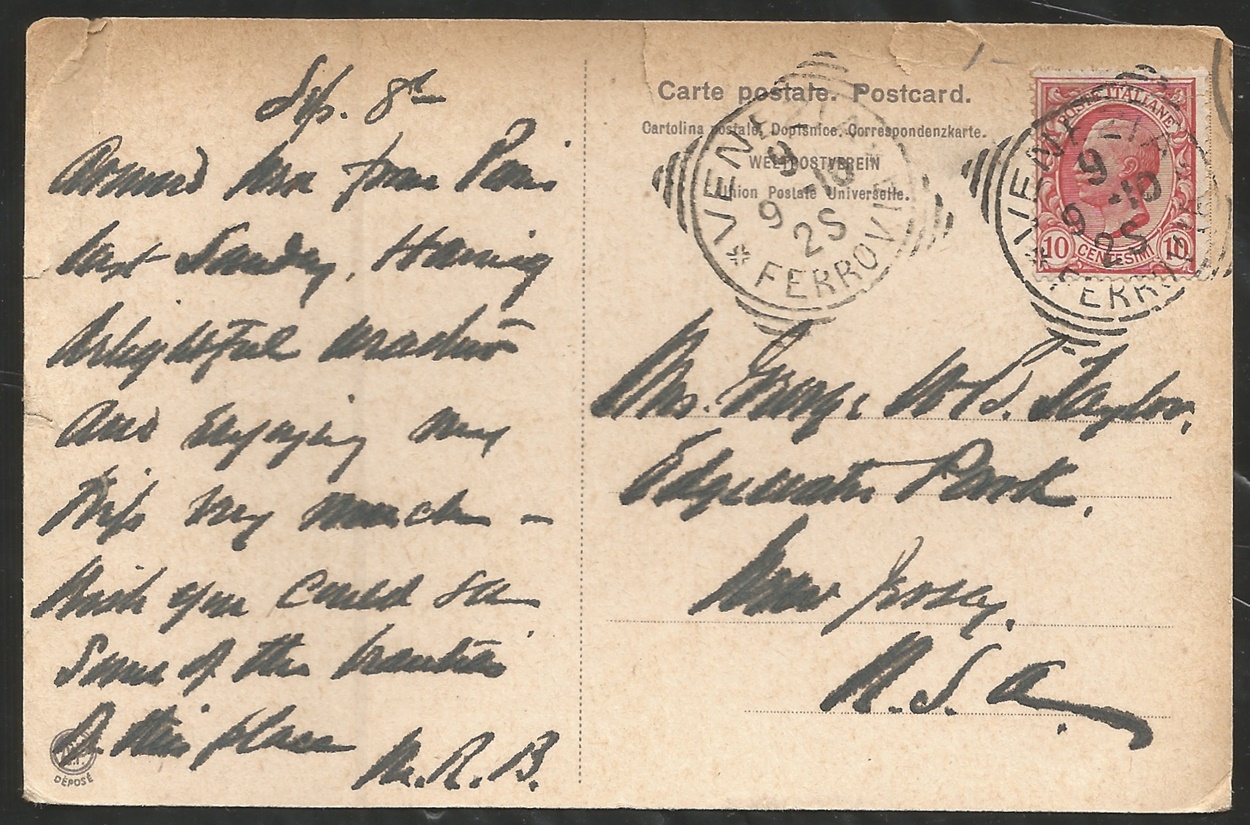 Sep. 8th
Arrived here from Paris
last Sunday, Having
delightful weather
and enjoying my
trip very much –
Wish you could see
Some of the beauties
of this place
M.R.B.
DÉPOSÉ
Carte postale. Postcard.
Cartolina postale, Dopisnice, Correspondenzkarte.
WELTPOSTVEREIN
Union Postale Universelle.
VENEZIA
9
9 -10
2S
* FERROVIA
POSTE ITALIANE
10 CENTESIMI 10
VENEZIA
9
9 -10
2S
* FERROVIA
Mrs. George W. Taylor,
Edgewater Park,
New Jersey,
U.S.A.